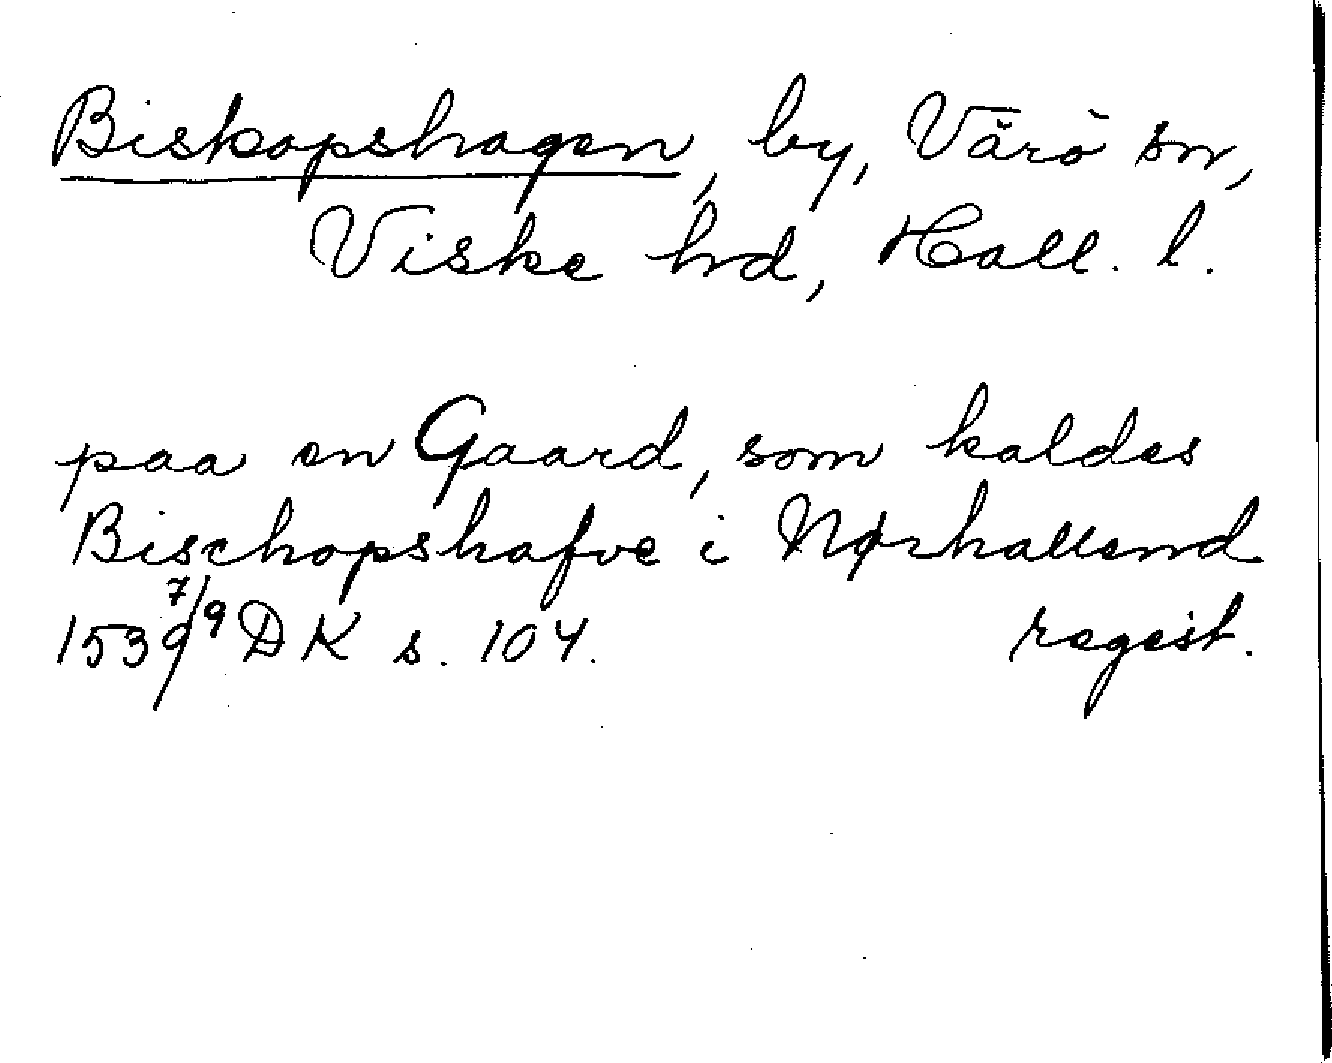 Biskopshagen, by, Värö sn,
Viske hd, Hall. l.
paa en Gaard, som kaldes
Bischopshafve i Nørhalland
1539 7/9 DK s. 104. regist.